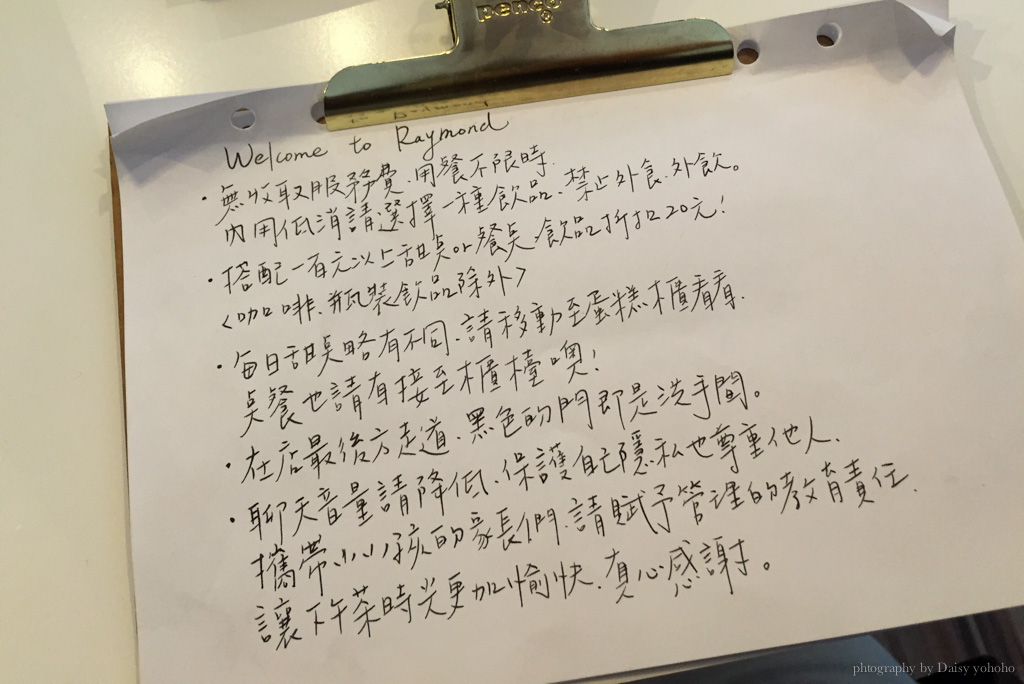 penco
Welcome to Raymond
·無收取服務費、用餐不限時、
內用低消請選擇一種飲品、禁止外食、外飲。
·搭配一百元以上甜點or餐點、飲品折扣20元!
<咖啡、瓶裝飲品除外>
·每日甜點略有不同、請移動至蛋糕櫃看看、
點餐也請直接至櫃檯噢!
·在店最後方走道、黑色的門即是洗手間。
·聊天音量請降低、保護自己隱私也尊重他人、
攜帶小小孩的家長們、請賦予管理的教育責任、
讓下午茶時光更加愉快、真心感謝。
phtography by Daisy yohoho